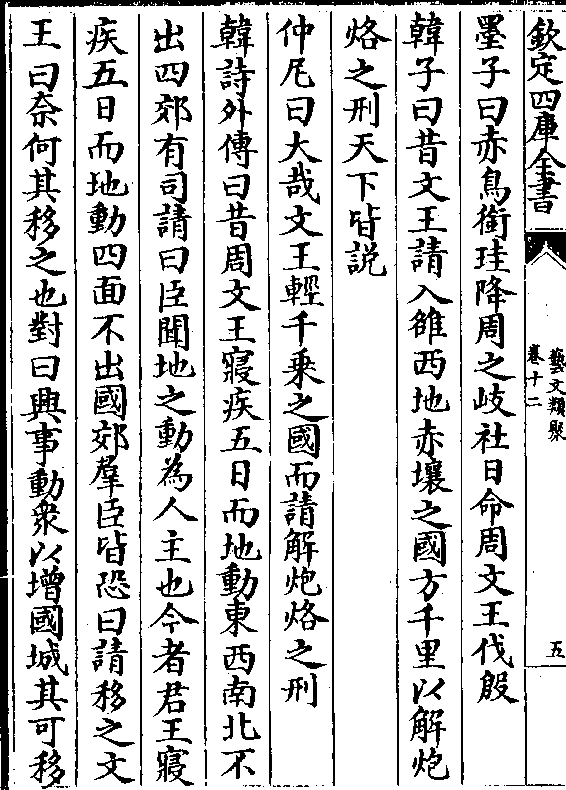 欽定四庫全書
藝文類聚
卷十二
五
墨子曰赤鳥銜珪降周之岐社曰命周文王伐殷
韓子曰昔文王請入雒西地赤壤之國方千里以解炮
烙之刑天下皆説
仲尼曰大哉文王輕千乗之國而請解炮烙之刑
韓詩外傳曰昔周文王寢疾五日而地動東西南北不
出四郊有司請曰臣聞地之動為人主也今者君王寢
疾五日而地動四面不出國郊羣臣皆恐曰請移之文
王曰奈何其移之也對曰興事動衆以增國城其可移